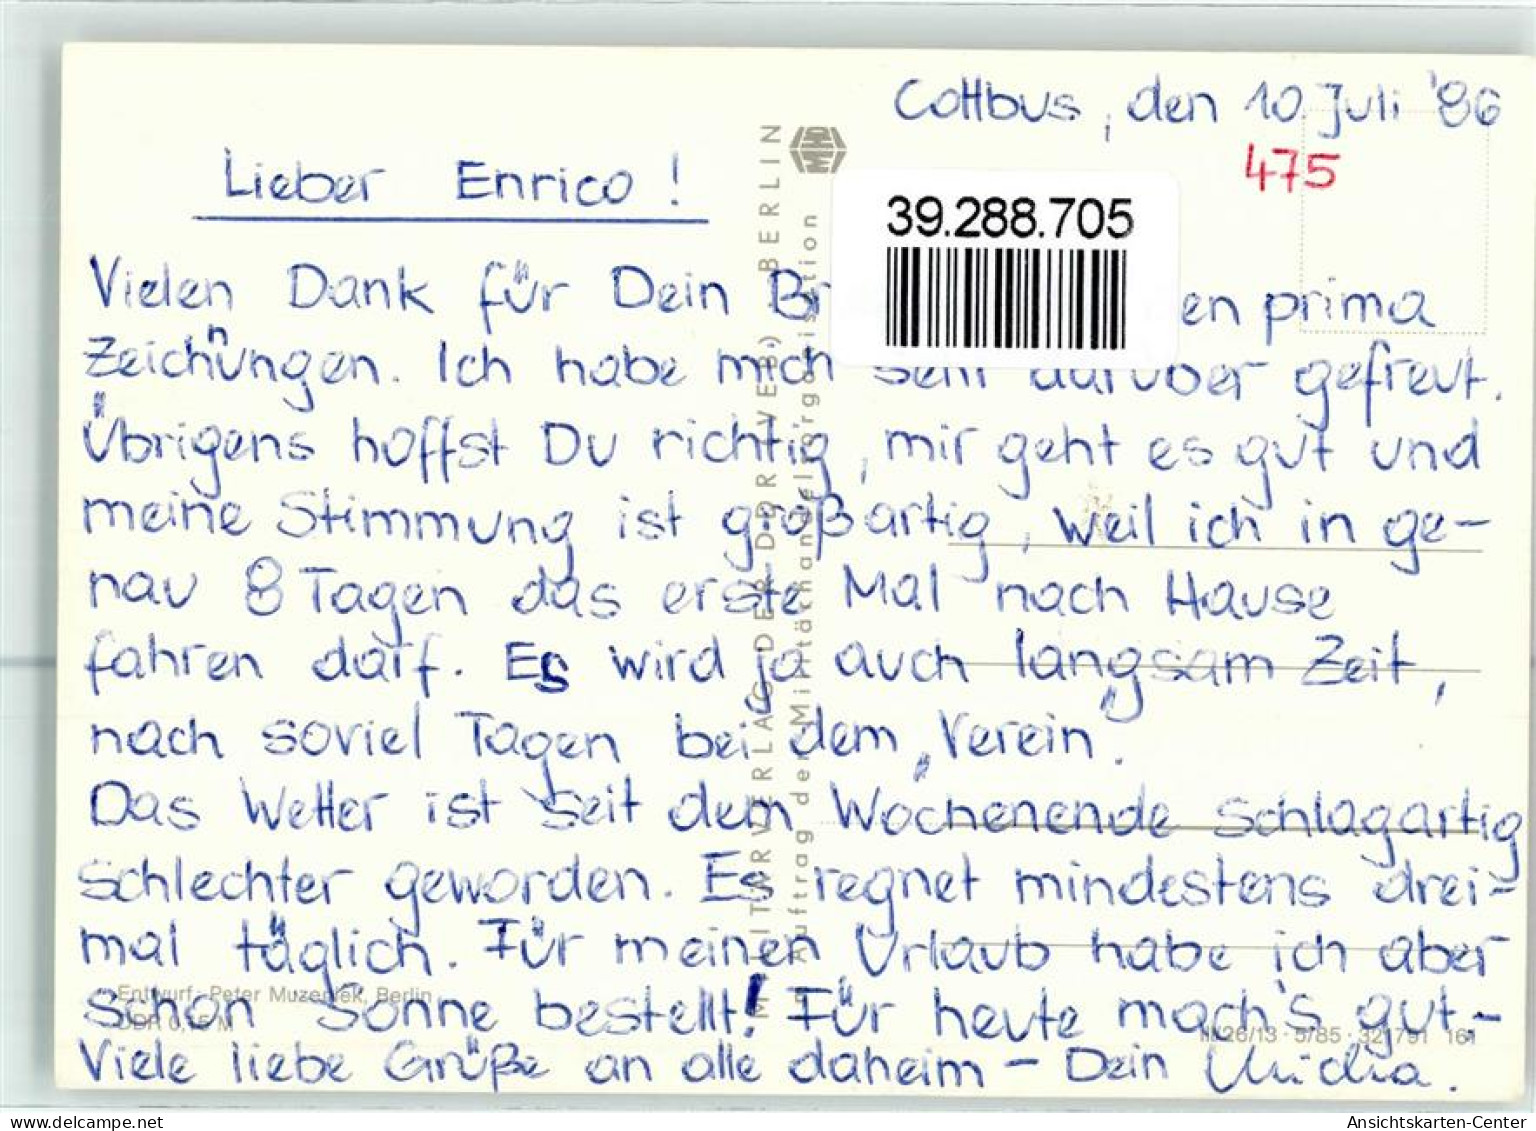 Cottbus, den 10. Juli '86
475
Lieber Enrico!
39.288.705
Vielen Dank für Dein Br en prima
Zeichnungen. Ich habe mich sehr darüber gefreut.
Übrigens hoffst Du richtig, mir geht es gut und
meine Stimmung ist großartig, weil ich in ge-
nau 8 Tagen das erste Mal nach Hause
fahren darf. Es wird ja auch langsam Zeit,
nach soviel Tagen bei dem „Verein".
Das Wetter ist seit dem Wochenende schlagartig
schlechter geworden. Es regnet mindestens drei-
mal täglich. Für meinen Urlaub habe ich aber
schon Sonne bestellt! Für heute mach's gut -
Viele liebe Grüße an alle daheim - Dein
MILITÄRVERLAG DER DDR (VEB) · BERLIN
im Auftrag der Militärhandelsorganisation
MHO
Entwurf: Peter Muzeniek, Berlin
DDR 0,15 M
III/26/13 · 5/85 · 321791 161
Ansichtskarten-Center
www.delcampe.net